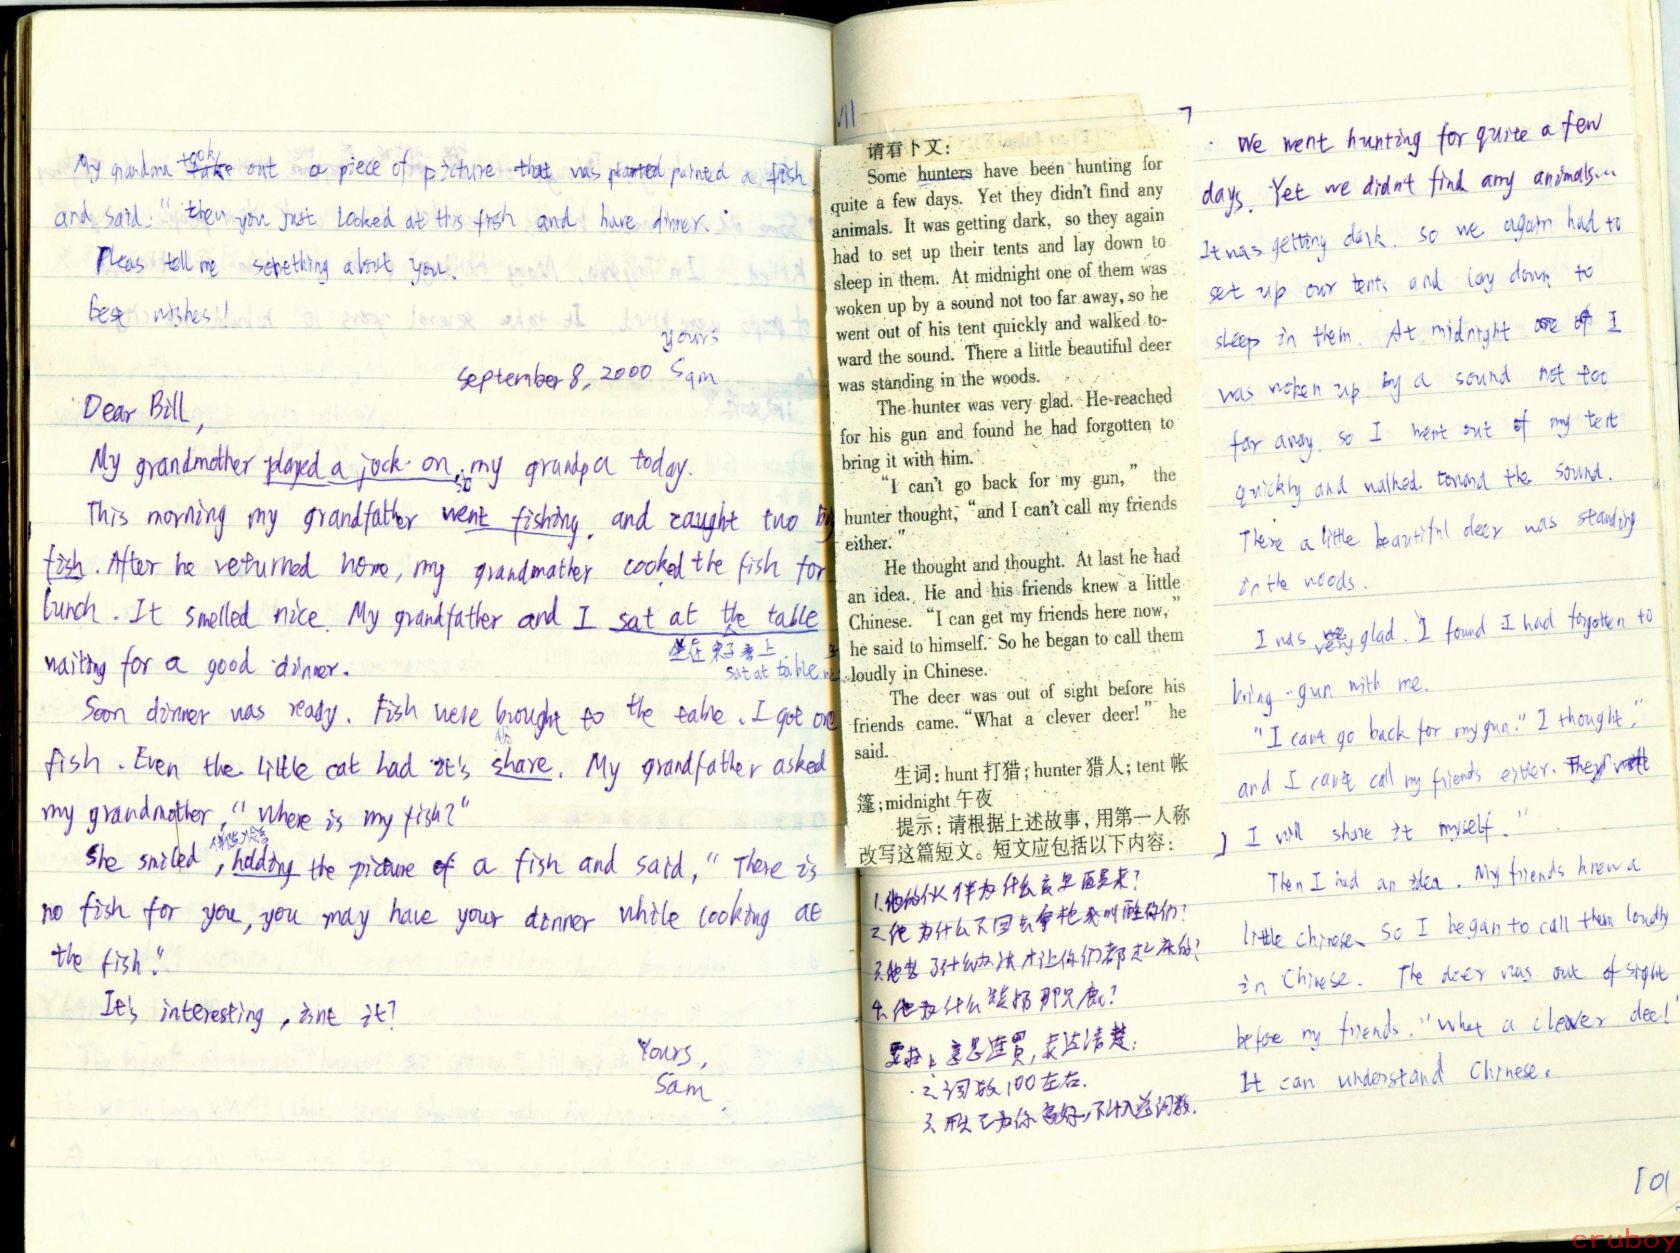 My grandma took out a piece of picture that was painted a fish
and said: "then you just looked at this fish and have dinner.
Pleas tell me something about you.
Best wishes!
yours
Sam
September 8, 2000
Dear Bill,
My grandmother played a jock on my grandpa today.
This morning my grandfather went fishing, and caught two big
fish. After he returned home, my grandmather cooked the fish for
lunch. It smelled nice. My grandfather and I sat at the table
waiting for a good dinner.
坐在桌子旁上
sat at table
Soon dinner was ready. Fish were brought to the table. I got one
fish. Even the little cat had it's share. My grandfather asked
my grandmother, "Where is my fish?"
She smiled, holding the picture of a fish and said, "There is
no fish for you, you may have your dinner while looking at
the fish."
It's interesting, isnt it?
Yours,
Sam
VII
请看下文：
Some hunters have been hunting for
quite a few days. Yet they didn't find any
animals. It was getting dark, so they again
had to set up their tents and lay down to
sleep in them. At midnight one of them was
woken up by a sound not too far away, so he
went out of his tent quickly and walked to-
ward the sound. There a little beautiful deer
was standing in the woods.
The hunter was very glad. He reached
for his gun and found he had forgotten to
bring it with him.
"I can't go back for my gun," the
hunter thought, "and I can't call my friends
either."
He thought and thought. At last he had
an idea. He and his friends knew a little
Chinese. "I can get my friends here now,"
he said to himself. So he began to call them
loudly in Chinese.
The deer was out of sight before his
friends came. "What a clever deer!" he
said.
生词：hunt 打猎；hunter 猎人；tent 帐
篷；midnight 午夜
提示：请根据上述故事，用第一人称
改写这篇短文。短文应包括以下内容：
1.他的伙伴为什么
2.他为什么不回去拿枪
3.他想了什么办法才让你们都起床的？
4.他为什么 那只鹿？
要求：1.意思连贯，表达清楚；
2.词数100左右.
3.开头已为你写好，不计入总词数.
We went hunting for quite a few
days. Yet we didn't find any animals...
It was getting dark. so we again had to
set up our tents and lay down to
sleep in them. At midnight one of I
was woken up by a sound not too
far away. so I went out of my tent
quickly and walked toward the sound.
There a little beautiful deer was standing
in the woods.
I was very glad. I found I had forgotten to
bring gun with me.
"I cant go back for my gun." I thought,"
and I can't call my friends either.
I will share it myself."
Then I had an idea. My friends knew a
little chinese. so I began to call them loudly
in Chinese. The deer was out of sight
before my friends. "What a clever deer!
It can understand Chinese.
101
cruboy